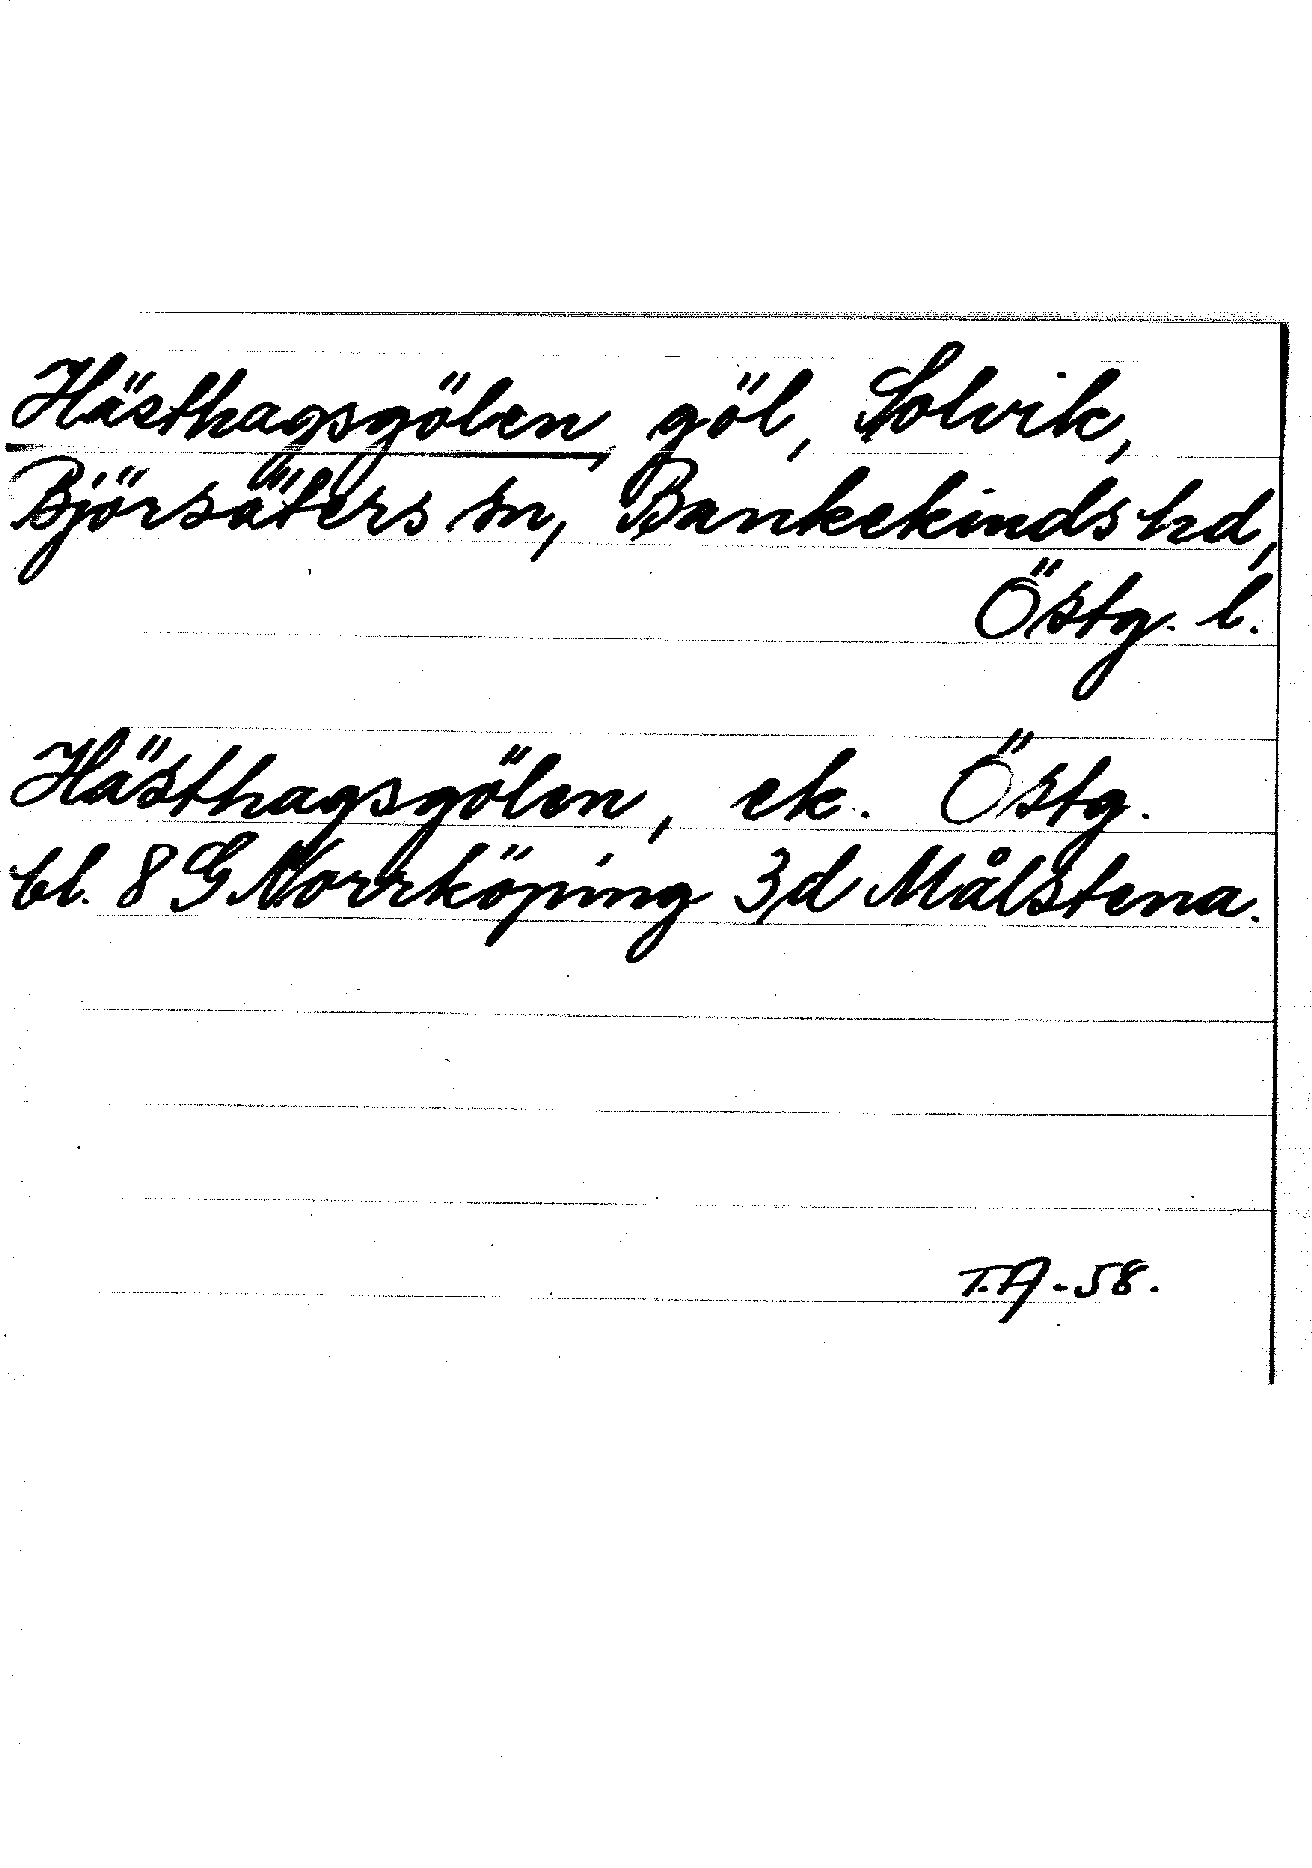 Hästhagsgölen, göl, Solvik,
Björsäters sn, Bankekinds hd,
Östg. l.
Hästhagsgölen, ek. Östg.
bl. 8 G Norrköping 3d Målstena.
T.A-58.